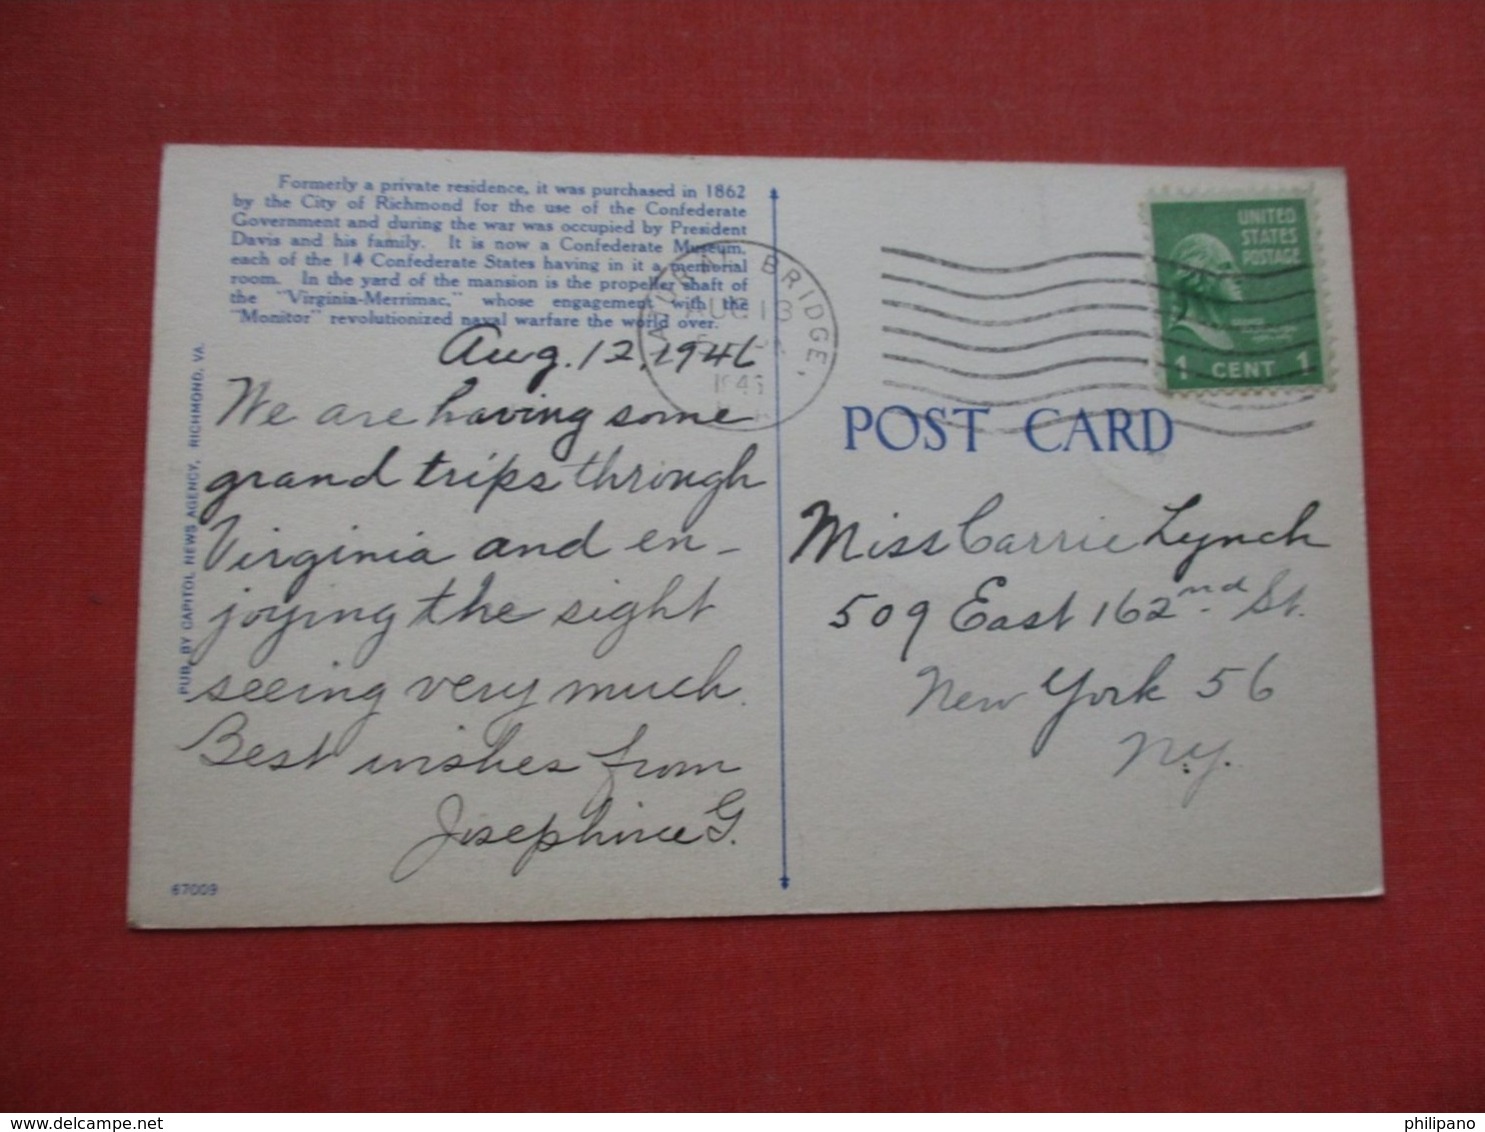 Formerly a private residence, it was purchased in 1862
by the City of Richmond for the use of the Confederate
Government and during the war was occupied by President
Davis and his family. It is now a Confederate Museum,
each of the 14 Confederate States having in it a memorial
room. In the yard of the mansion is the propeller shaft of
the "Virginia-Merrimac," whose engagement with the
"Monitor" revolutionized naval warfare the world over.
Aug. 12, 1946
We are having some
grand trips through
Virginia and en-
joying the sight
seeing very much.
Best wishes from
Josephine G.
PUB. BY CAPITOL NEWS AGENCY, RICHMOND, VA.
67009
BRIDGE,
AUG 13
1946
UNITED
STATES
POSTAGE
1 CENT 1
POST CARD
Miss Carrie Lynch
509 East 162nd St.
New York 56
N.Y.
philipano